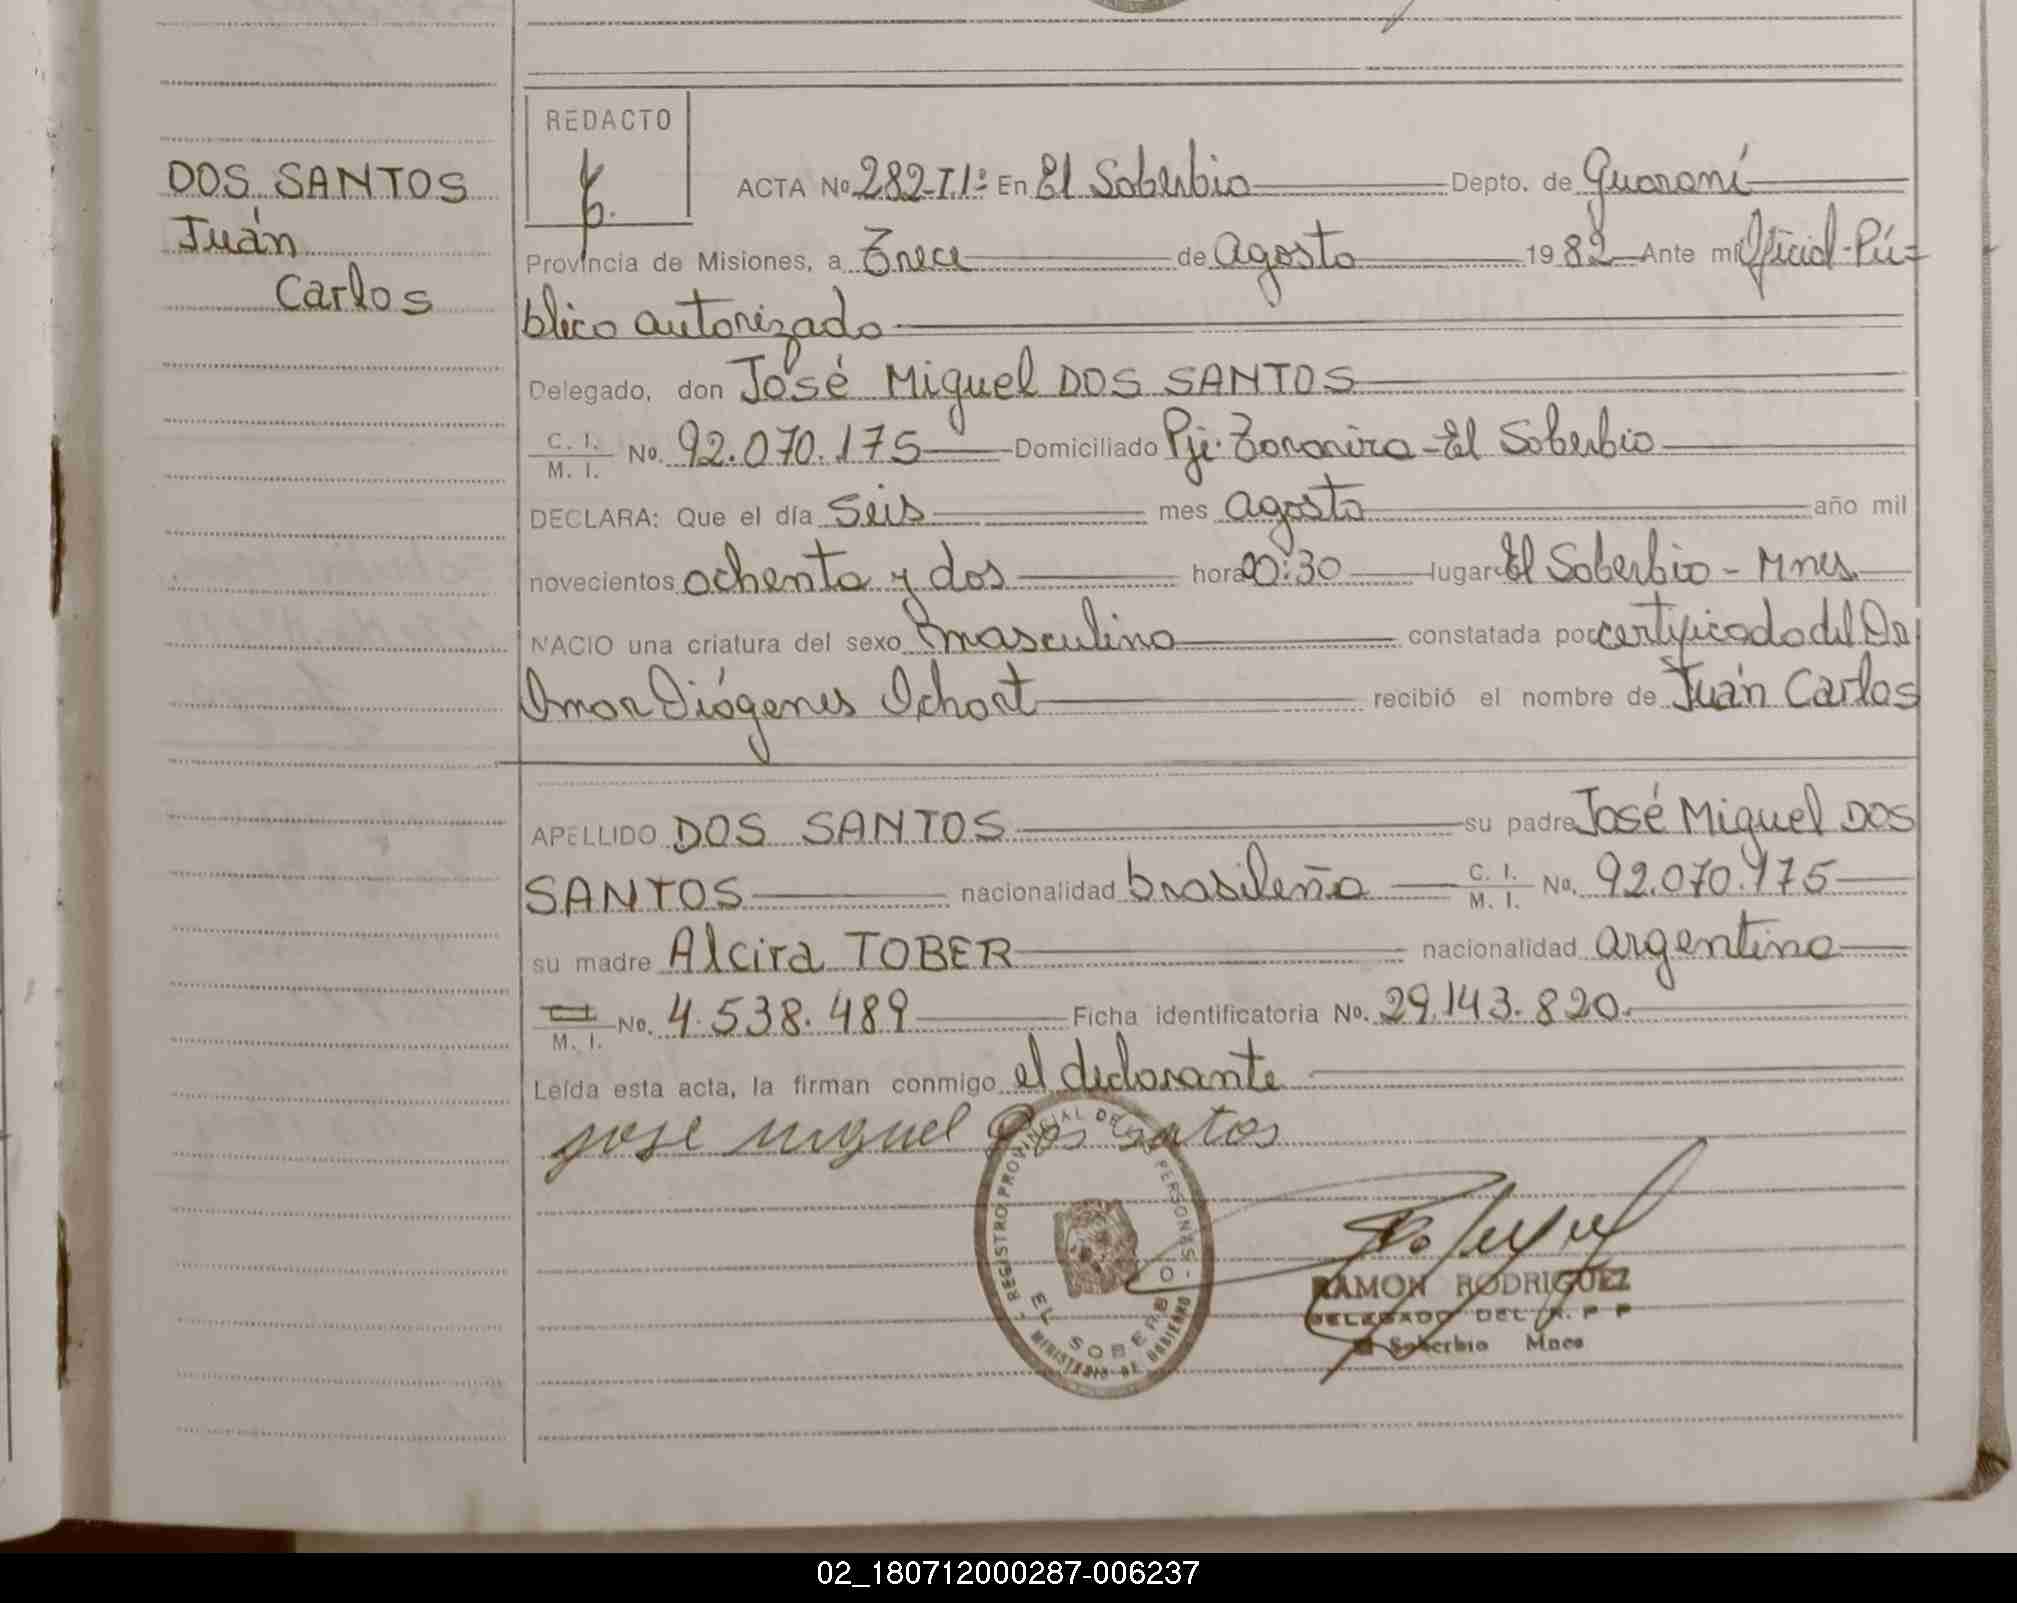 DOS SANTOS
Juán
Carlos
REDACTO
ACTA No 282-T.1º En El Soberbio Depto. de Guaraní
Provincia de Misiones, a Trece de agosto 1982 Ante mi Oficial Pú=
blico autorizado
Delegado, don José Miguel DOS SANTOS
C. I.
M. I. No. 92.070.175 Domiciliado Pje. - El Soberbio
DECLARA: Que el día seis mes agosto año mil
novecientos ochenta y dos hora 00:30 lugar El Soberbio - Mnes.
NACIO una criatura del sexo masculino constatada por certificado del Dr
Omar Diógenes Ichart recibió el nombre de Juán Carlos
APELLIDO DOS SANTOS su padre José Miguel DOS
SANTOS nacionalidad brasileña C. I.
M. I. No. 92.070.175
su madre Alcira TOBER nacionalidad argentina
M. I. No. 4.538.489 Ficha identificatoria No. 29.143.820.
Leída esta acta, la firman conmigo el declarante
jose miguel dos satos
REGISTRO PROVINCIAL DE LAS PERSONAS
EL SOBERBIO
MINISTERIO DE GOBIERNO
RAMON RODRIGUEZ
DELEGADO DEL R. P. P
El Soberbio Mnes
02_180712000287-006237